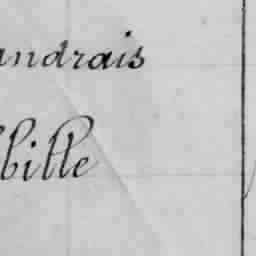 andrais
bille